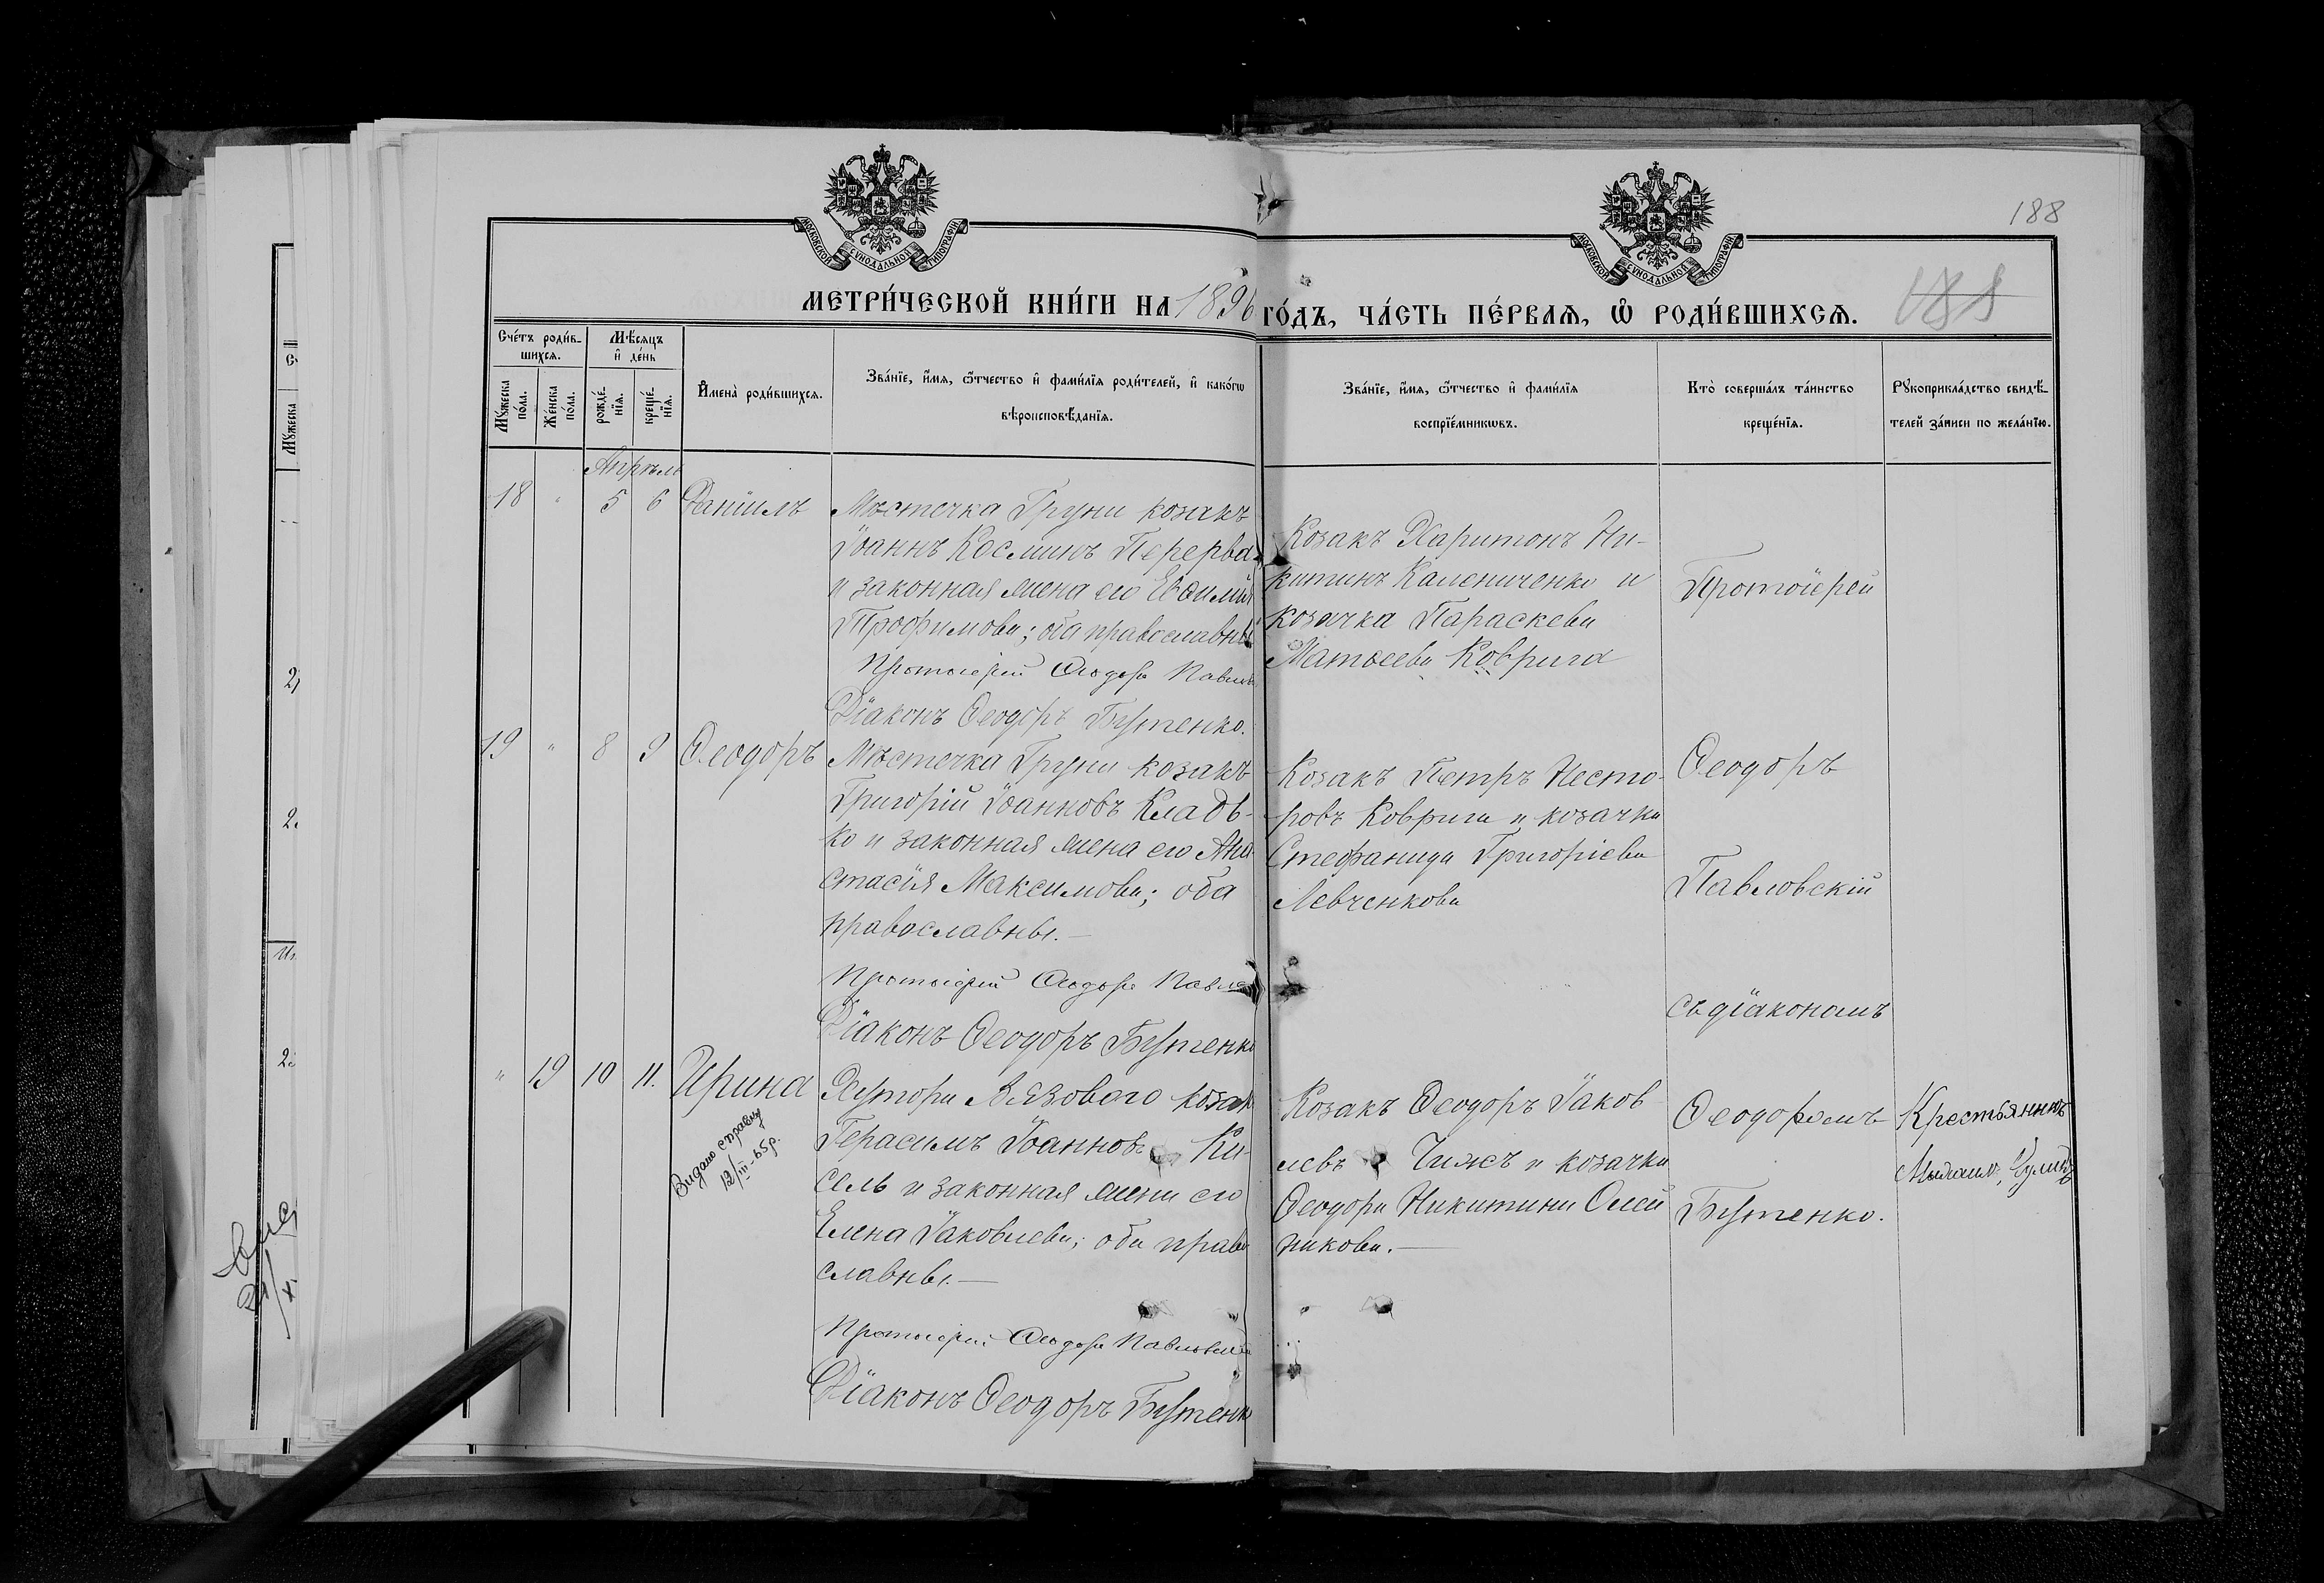 188
МОСКОВСКОЙ СѴНОДАЛЬНОЙ ТИПОГРАФІИ
МОСКОВСКОЙ СѴНОДАЛЬНОЙ ТИПОГРАФІИ
МЕТРИ́ЧЕСКОЙ КНИ́ГИ НА 1896 ГО́ДЪ, ЧА́СТЬ ПЕ́РВАѦ, Ѡ҆ РОДИ́ВШИХСѦ.
Сче́тъ роди́в-
шихсѧ.
Мѣ́сѧцъ
и҆ де́нь
Мꙋ́жеска
по́ла.
Же́нска
по́ла.
рожде́-
нїѧ.
креще́-
нїѧ.
И҆мена̀ роди́вшихсѧ.
Зва́нїе, и҆́мѧ, ѻ҆́тчество и҆ фами́лїѧ роди́телей, и҆ како́гѡ
вѣроисповѣ́данїѧ.
Зва́нїе, и҆́мѧ, ѻ҆́тчество и҆ фами́лїѧ
воспрїе́мникѡвъ.
Кто̀ соверша́лъ та́инство
креще́нїѧ.
Рꙋкоприкла́дство свидѣ́-
телей за́писи по жела́нїю.
Апрѣль
18 " 5 6 Даніилъ
Мѣстечка Груни козакъ
Іоаннъ Косминъ Перерва
и законная жена его Евѳимія
Трофимова; оба православны
Протоіерей Ѳеодоръ Павловскій
Діаконъ Ѳеодоръ Бутенко.
Козакъ Харитонъ Ни-
китинъ Калениченко и
козачка Параскева
Матѳеева Коврига
Протоіерей
19 " 8 9 Ѳеодоръ
Мѣстечка Груни козакъ
Григорій Іоанновъ Кладь-
ко и законная жена его Ана-
стасія Максимова; оба
православны.—
Протоіерей Ѳеодоръ Павлов
Діаконъ Ѳеодоръ Бутенко
Козакъ Петръ Несто-
ровъ Коврига и козачка
Стефанида Григоріева
Левченкова
Ѳеодоръ
Павловскій
съ діакономъ
" 19 10 11. Ирина
Видано справку
12/III-65р.
Хутора Вязового козак
Герасимъ Іоанновъ Ки-
сель и законная жена его
Елена Іаковлева; оба право
славны.—
Протоіерей Ѳеодоръ Павловскій
Діаконъ Ѳеодоръ Бутенк
Козакъ Ѳеодоръ Іаков
левъ Чижъ и козачка
Ѳеодора Никитина Олей
никова.—
Ѳеодоромъ
Бутенко.
Крестьянинъ